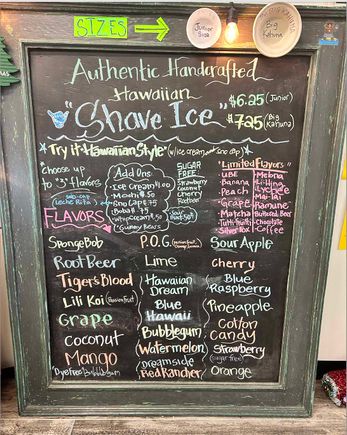 SIZES
Junior Size
Big Kahuna
Authentic Handcrafted
Hawaiian
"Shave Ice"
$6.25 (Junior)
$7.25 (Big Kahuna)
Try it "Hawaiian Style" (w/ice cream and sno cap)
choose up
to "3" flavors
FLAVORS
Add Ons:
Ice Cream $1.00
Mochi $.50
Sno Cap $.75
Boba $.75
Whip Cream $.50
Gummy Bears
SUGAR
FREE
Strawberry
Coconut
Cherry
"Limited Flavors"
UBE
Banana
Peach
Grape
Matcha
Tutti fruiti
Silver Fox
Melona
Lychee
Mai-Tai
Ramune
Buttered Beer
Chocolate
Coffee
SpongeBob
P.O.G.
Sour Apple
Root Beer
Lime
cherry
Tiger's Blood
Hawaiian
Dream
Blue
Raspberry
Lili Koi (Passion fruit)
Blue
Hawaii
Pineapple
Grape
Bubblegum
Cotton
Candy
Coconut
Watermelon
Strawberry
(sugar free)
Mango
Dreamside
Red Rancher
Orange
"Dye Free" Bubblegum